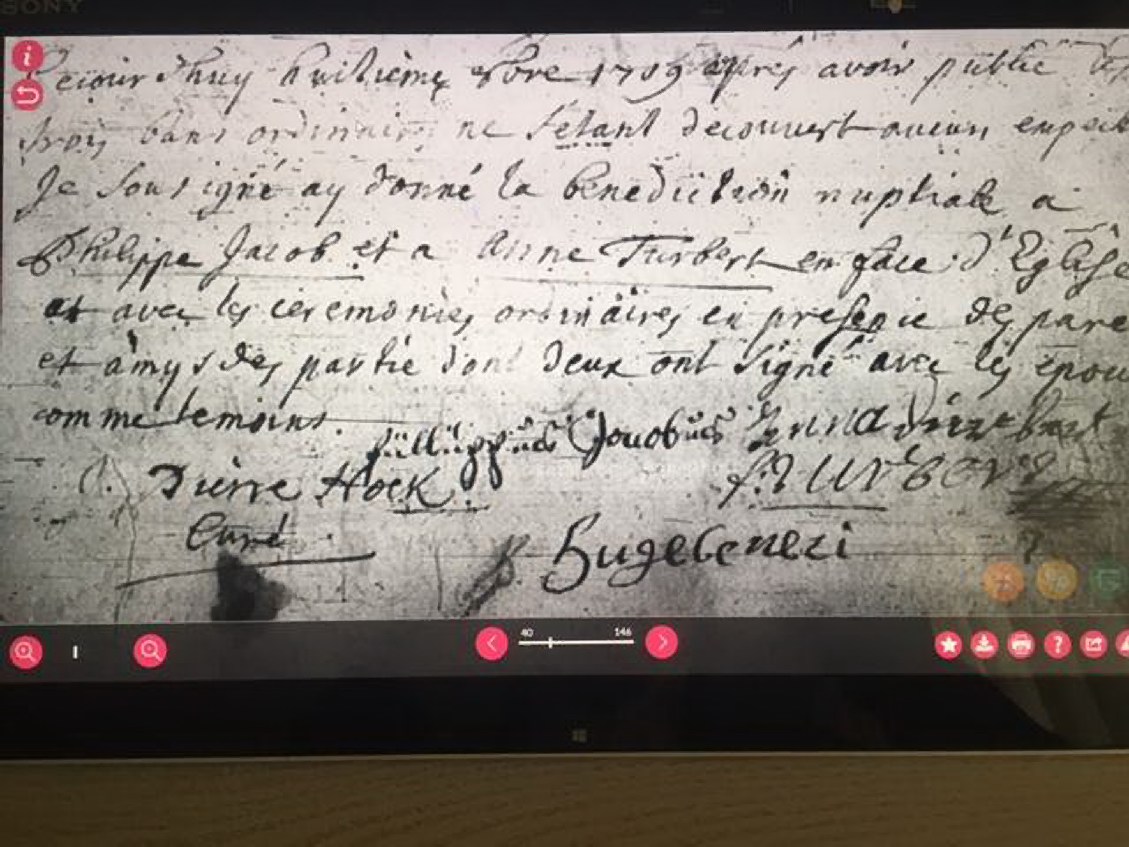 SONY
ceiour d'huy huitième xbre 1709 après avoir publié les
trois bans ordinaires ne s'étant decouvert aucun empeck
Je sousigné ay donné la benediction nuptiale a
Philippe Jacob et a Anne Turbert en face d'Eglise
et avec les ceremonies ordinaires en presence des pare
et amys des partie dont deux ont signé avec les epou
comme temoins.
füllippus Jacobus Anna
Pierre Hock
f. Turbert
Curé
40
146